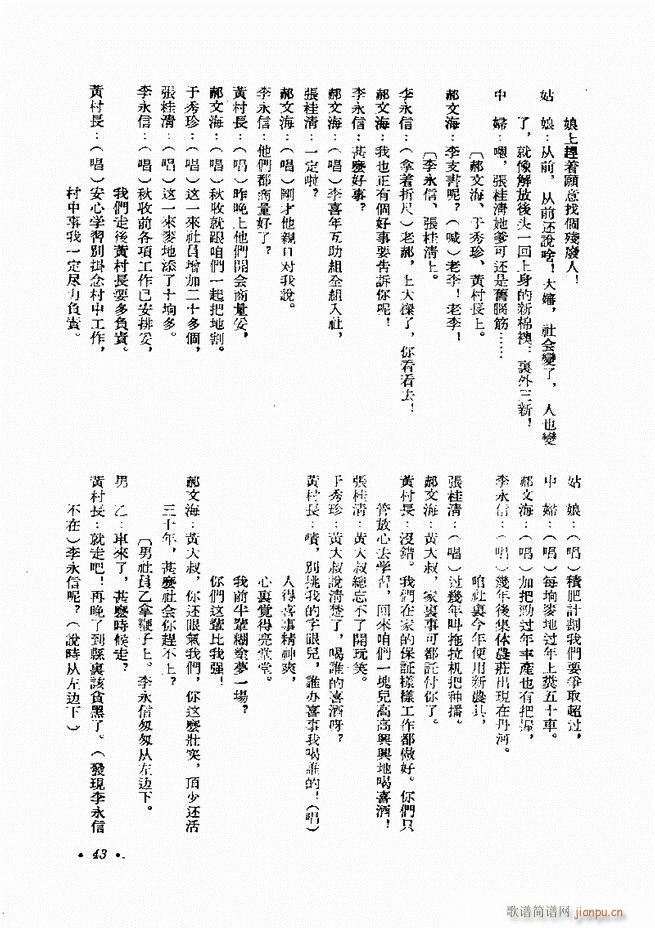 娘上趕着願意找個殘廢人！
姑　娘：从前，从前还說啥！大嬸，社会變了，人也變
了，就像解放後头一回上身的新棉襖：裏外三新！
中　婦：嗯，張桂清她爹可还是舊腦筋……
〔郝文海、于秀珍、黃村長上。
郝文海：李支書呢？（喊）老李！老李！
〔李永信、張桂清上。
李永信：（拿着折尺）老郝，上大樑了，你看看去！
郝文海：我也正有個好事要告訴你呢！
李永信：甚麽好事？
郝文海：（唱）李喜年互助組全組入社，
張桂清：一定啦？
郝文海：（唱）剛才他親口对我說。
李永信：他們都商量好了？
黃村長：（唱）昨晚上他們開会商量妥，
郝文海：（唱）秋收就跟咱們一起把地割。
于秀珍：（唱）这一來社員增加二十多個，
張桂清：（唱）这一來麥地添了十垧多。
李永信：（唱）秋收前各項工作已安排妥，
我們走後黃村長要多負責。
黃村長：（唱）安心学習別掛念村中工作，
村中事我一定尽力負責。
姑　娘：（唱）積肥計划我們要爭取超过，
中　婦：（唱）每垧麥地过年上糞五十車。
郝文海：（唱）加把勁过年丰產也有把握，
李永信：（唱）幾年後集体農莊出現在丹河。
咱社裏今年便用新農具，
張桂清：（唱）过幾年叫拖拉机把种播。
郝文海：黃大叔，家裏事可都託付你了。
黃村長：沒錯。我們在家的保証樣樣工作都做好。你們只
管放心去学習，回來咱們一塊兒高高興興地喝喜酒！
張桂清：黃大叔總忘不了開玩笑。
于秀珍：黃大叔說清楚了，喝誰的喜酒呀？
黃村長：嘖，別挑我的字眼兒，誰办喜事我喝誰的！（唱）
人得喜事精神爽，
心裏覚得亮堂堂。
我前半輩糊塗夢一場？
你們这輩比我强！
郝文海：黃大叔，你还眼氣我們，你这麽壯实，頂少还活
三十年，甚麽社会你趕不上？
〔男社員乙拿鞭子上。李永信匆匆从左边下。
男　乙：車來了，甚麽時候走？
黃村長：就走吧！再晚了到縣裏該貪黑了。（發現李永信
不在）李永信呢？（說時从左边下）
·43·
歌谱简谱网 jianpu.cn